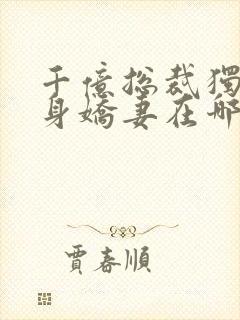 千億总裁獨
身嬌妻在哪
賈春順